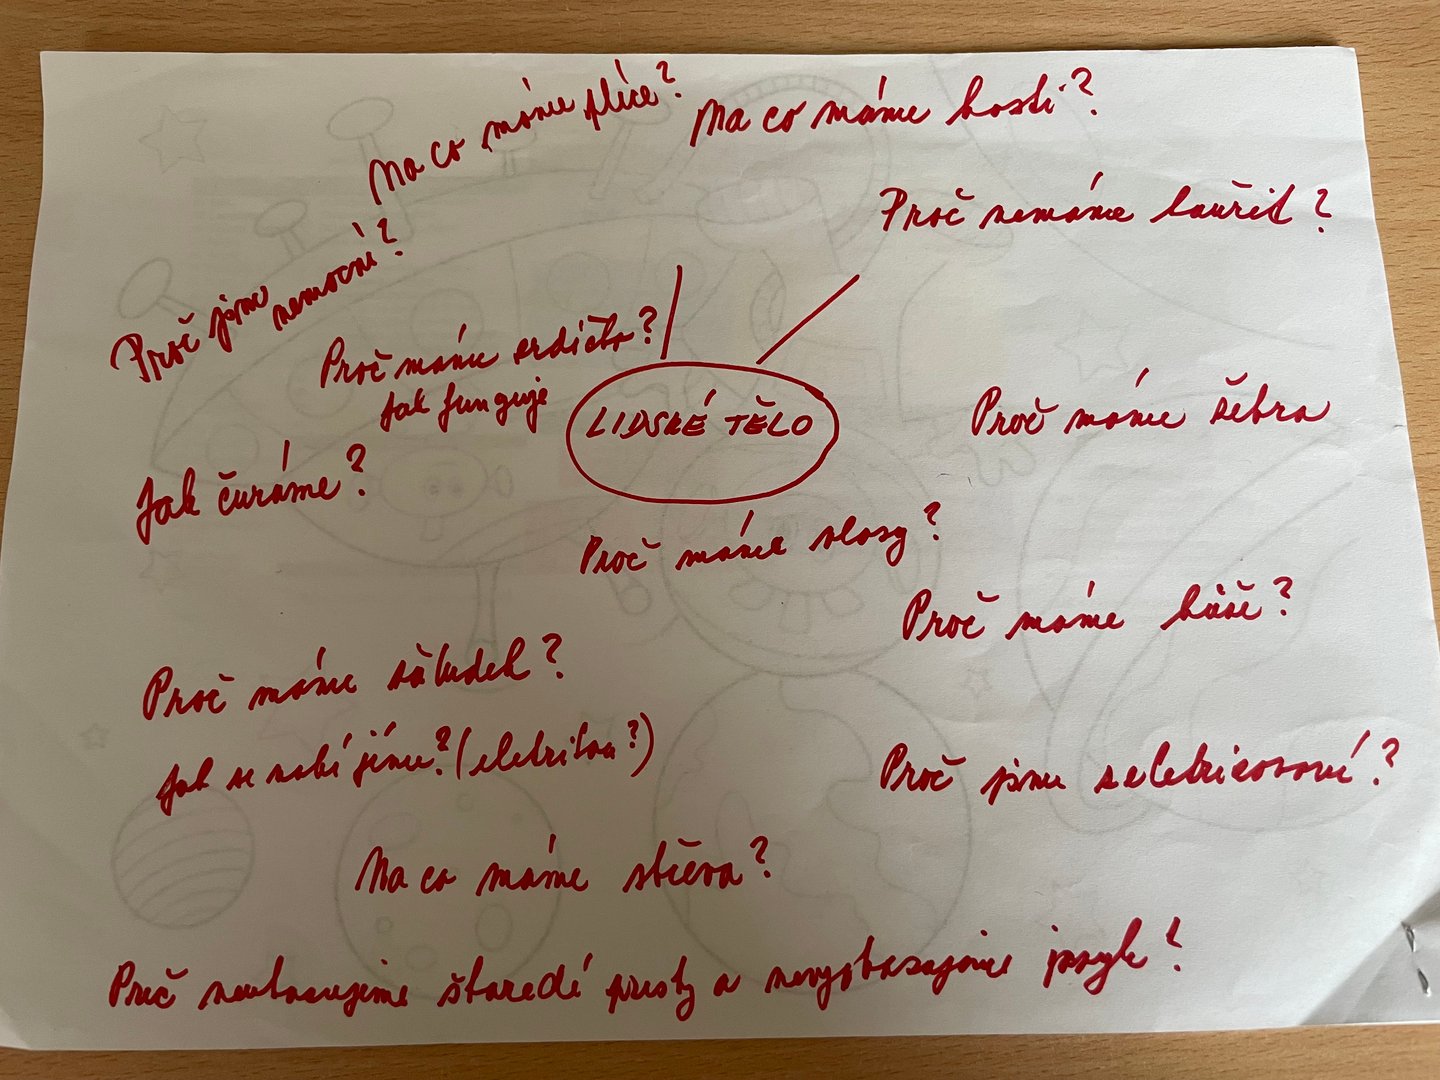 Na co máme plíce?
Na co máme kosti?
Proč nemáme kouřit?
Proč jsme
nemocní?
Proč máme srdíčko?
Jak funguje
LIDSKÉ TĚLO
Proč máme žebra
Jak čuráme?
Proč máme vlasy?
Proč máme kůže?
Proč máme žaludek?
Jak se nabíjíme? (eletrika?)
Proč jsme
Na co máme střeva?
Proč neukazujeme prsty a nevyplazujeme jazyk?